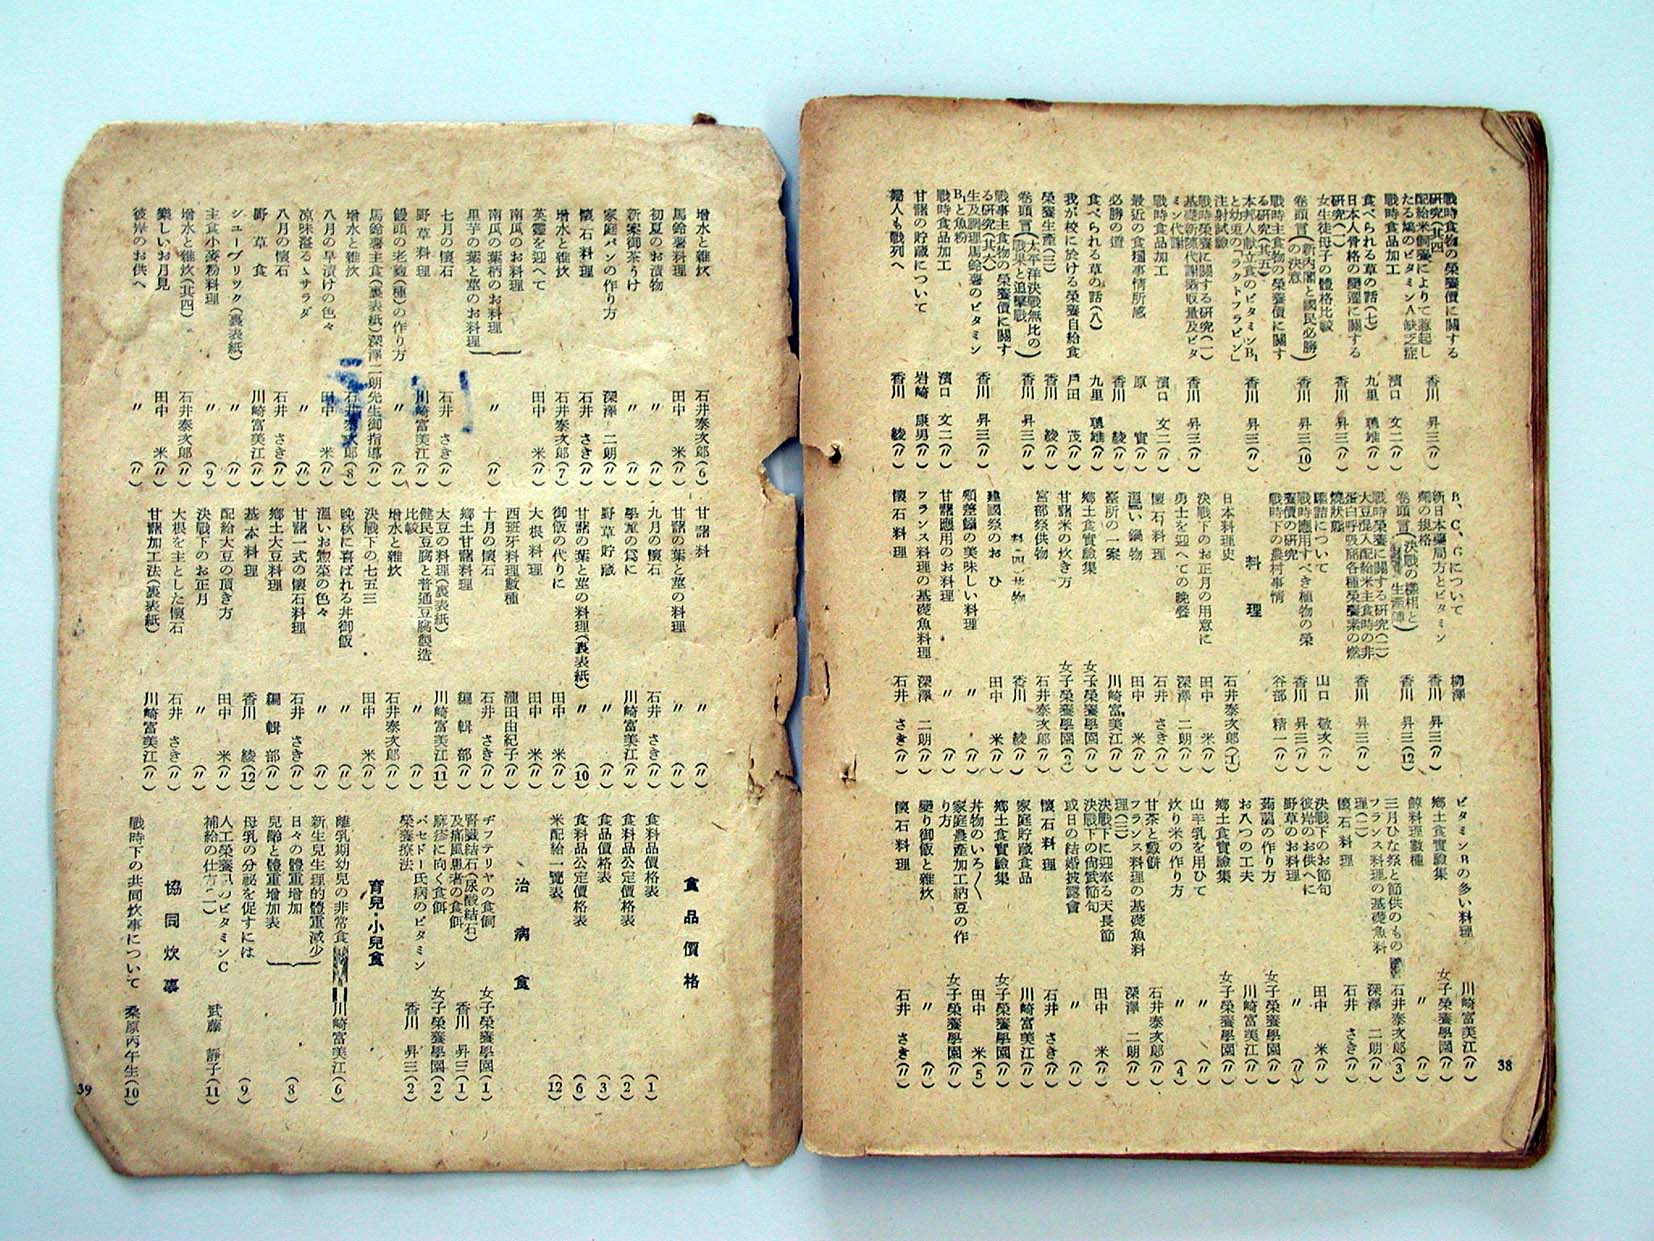 戰時食物の榮養價に關する
研究(其四) 香川 昇三(〃)
配給米飼養によりて惹起し
たる鳩のビタミンA缺乏症
戰時食品加工 濱口 文二(〃)
食べられる草の話(七) 九里 聰雄(〃)
日本人骨格の變遷に關する
研究(一) 香川 昇三(〃)
女生徒母子の體格比較
卷頭言(新內閣と國民必勝
の決意) 香川 昇三(10)
戰時主食物の榮養價に關す
る研究(其五)
本邦人献立食のビタミンB₁
と幼兎の「ラクトフラビン」
注射試驗 香川 昇三(〃)
戰時榮養に關する研究(一)
基礎新陳代謝酒収量及ビタ
ミン代謝 香川 昇三(〃)
戰時食品加工 濱口 文二(〃)
最近の食糧事情所感 原 實(〃)
必勝の道 香川 綾(〃)
食べられる草の話(八) 九里 聰雄(〃)
我が校に於ける榮養自給食 戶田 茂(〃)
榮養生產(三) 香川 綾(〃)
卷頭言(太平洋決戰無比の
戰果と追擊戰) 香川 昇三(〃)
戰事主食物の榮養價に關す
る研究(其六)
生及調理馬鈴薯のビタミン
B₁と魚粉 香川 昇三(〃)
戰時食品加工 濱口 文二(〃)
甘藷の貯藏について 岩崎 康男(〃)
婦人も戰列へ 香川 綾(〃)
B、C、Gについて 柳澤
新日本藥局方とビタミン
劑の規格 香川 昇三(〃)
卷頭言(決戰の樣相と
生產陣) 香川 昇三(12)
戰時榮養に關する研究(二)
大豆混入配給米主食時の非
蛋白呼吸商各種榮養素の燃
燒狀態 香川 昇三(〃)
罐詰について 山口 敏次(〃)
戰時應用すべき植物の榮
養價の研究 香川 昇三(〃)
戰時下の農村事情 谷部 精一(〃)
料理
日本料理史 石井泰次郎(1)
決戰下のお正月の用意に 田中 米(〃)
勇士を迎へての晚餐 深澤 二朗(〃)
懷石料理 石井 さき(〃)
溫い鍋物 田中 米(〃)
臺所の一案 川崎富美江(〃)
鄉土食實驗集 女子榮養學園(〃)
甘藷米の炊き方 女子榮養學園(2)
宮部祭供物 石井泰次郎(〃)
建國祭のお ひ 香川 綾(〃)
田中 米(〃)
類差鰯の美味しい料理 〃(〃)
甘藷應用のお料理 〃(〃)
フランス料理の基礎魚料理 深澤 二朗(〃)
懷石料理 石井 さき(〃)
ビタミンBの多い料理 川崎富美江(〃)
鄉土食實驗集 女子榮養學園(〃)
鯨料理數種 〃(〃)
三月ひな祭と節供のもの 石井泰次郎(3)
フランス料理の基礎魚料
理(二) 深澤 二朗(〃)
懷石料理 石井 さき(〃)
決戰下のお節句
彼岸のお供へに 田中 米(〃)
野草のお料理 〃(〃)
蒟蒻の作り方 女子榮養學園(〃)
お八つの工夫 川崎富美江(〃)
鄉土食實驗集 女子榮養學園(〃)
山羊乳を用ひて 〃(〃)
炊り米の作り方 〃(4)
甘茶と戲餅 石井泰次郎(〃)
フランス料理の基礎魚料
理(三) 深澤 二朗(〃)
決戰下に迎奉る天長節
決戰下の尙武節句 田中 米(〃)
或日の結婚披露會 〃(〃)
懷石料理 石井 さき(〃)
家庭貯藏食品 川崎富美江(〃)
鄉土食實驗集 女子榮養學園(〃)
丼物のいろ〱 田中 米(5)
家庭農產加工納豆の作
り方 女子榮養學園(〃)
變り御飯と雜炊 〃(〃)
懷石料理 石井 さき(〃)
38
增水と雜炊 石井泰次郎(6)
馬鈴薯料理 田中 米(〃)
初夏のお漬物 〃(〃)
新案御茶うけ 〃(〃)
家庭パンの作り方 深澤 二朗(〃)
懷石料理 石井 さき(〃)
增水と雜炊 石井泰次郎(7)
英靈を迎へて 田中 米(〃)
南瓜のお料理
南瓜の葉柄のお料理
里芋の葉と莖のお料理 〃(〃)
七月の懷石 石井 さき(〃)
野草料理 川崎富美江(〃)
饅頭の老麵(種)の作り方 〃(〃)
馬鈴薯主食(裏表紙)深澤二朗先生御指導(〃)
增水と雜炊 石井泰次郎(8)
八月の早漬けの色々 田中 米(〃)
凉味溢るゝサラダ 〃(〃)
八月の懷石 石井 さき(〃)
野草食 川崎富美江(〃)
シューブリック(裏表紙) 〃(〃)
主食小麥粉料理 〃(9)
增水と雜炊(其四) 石井泰次郎(〃)
樂しいお月見 田中 米(〃)
彼岸のお供へ 〃(〃)
甘藷料 〃(〃)
甘藷の葉と莖の料理 〃(〃)
九月の懷石 石井 さき(〃)
學童の爲に 川崎富美江(〃)
野草貯藏 〃(〃)
甘藷の葉と莖の料理(裏表紙) 〃(10)
御飯の代りに 田中 米(〃)
大根料理 田中 米(〃)
西班牙料理數種 瀧田由紀子(〃)
十月の懷石 石井 さき(〃)
鄉土甘藷料理 編輯部(〃)
大豆の料理(裏表紙) 川崎富美江(11)
健民豆腐と普通豆腐製造
比較 〃(〃)
增水と雜炊 石井泰次郎(〃)
決戰下の七五三 田中 米(〃)
晚秋に喜ばれる丼御飯 〃(〃)
溫いお惣菜の色々 〃(〃)
甘藷一式の懷石料理 石井 さき(〃)
鄉土大豆料理 編輯部(〃)
基本料理 香川 綾(12)
配給大豆の頂き方 田中 米(〃)
決戰下のお正月 〃(〃)
大根を主とした懷石 石井 さき(〃)
甘藷加工法(裏表紙) 川崎富美江(〃)
食品價格
食料品價格表 (1)
食料品公定價格表 (2)
食品價格表 (3)
食料品公定價格表 (6)
米配給一覽表 (12)
治病食
ヂフテリヤの食餌 女子榮養學園(1)
腎臟結石(尿酸結石)
及痛風患者の食餌 香川 昇三(1)
麻疹に向く食餌 女子榮養學園(2)
バセドー氏病のビタミン
榮養療法 香川 昇三(2)
育兒・小兒食
離乳期幼兒の非常食 川崎富美江(6)
新生兒生理的體重減少
日々の體重增加
兒齡と體重增加表 (8)
母乳の分祕を促すには (9)
人工榮養兒のビタミンC
補給の仕方(二) 武藤 靜子(11)
協同炊事
戰時下の共同炊事について 桑原丙午生(10)
39